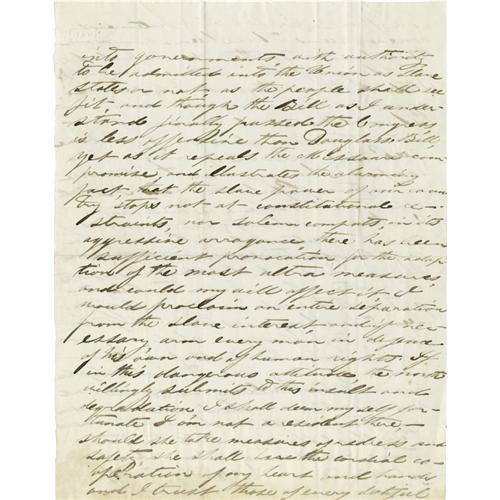 into governments, with authority
to be admitted into the Union as Slave
States or not as the people shall see
fit, and though the Bill as I under-
stand finally passed the Congress
is less offensive than Douglas's Bill,
yet as it repeals the Missouri com-
promise, and illustrates the alarming
fact that the slave power of our coun-
try stops not at constitutional re-
straints, nor solemn compacts, in its
aggressive arrogance, there has been
sufficient provocation for the adop-
tion of the most ultra measures
and could my will effect it I
would proclaim an entire separation
from the slave interest and if nec-
essary arm every man in defence
of his own and of human rights. If
in this dangerous attitude the north
willingly submits to this insult and
degradation, I shall deem myself for-
tunate I am not a resident there,—
should she take measures of redress and
safety she shall have the cordial co-
operation of my heart and hands
and I trust those of every